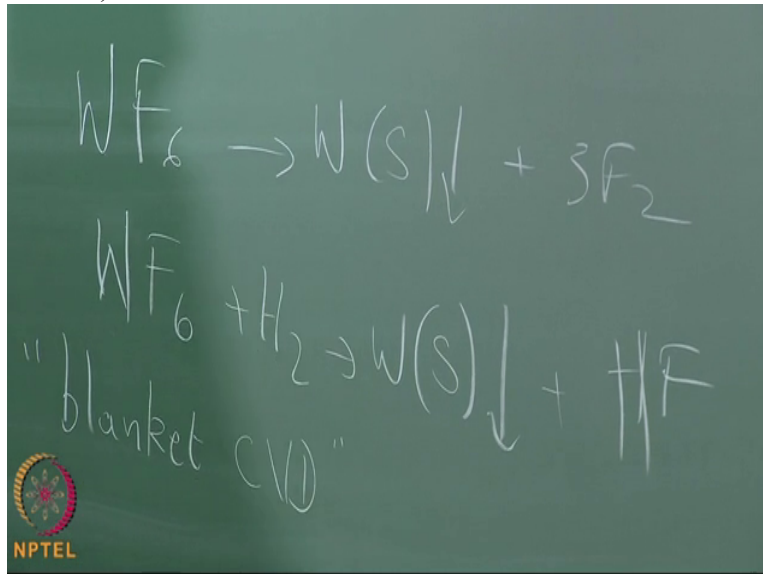 WF₆ → W(S)↓ + 3F₂
WF₆ + H₂ → W(S)↓ + HF
"blanket CVD"
NPTEL